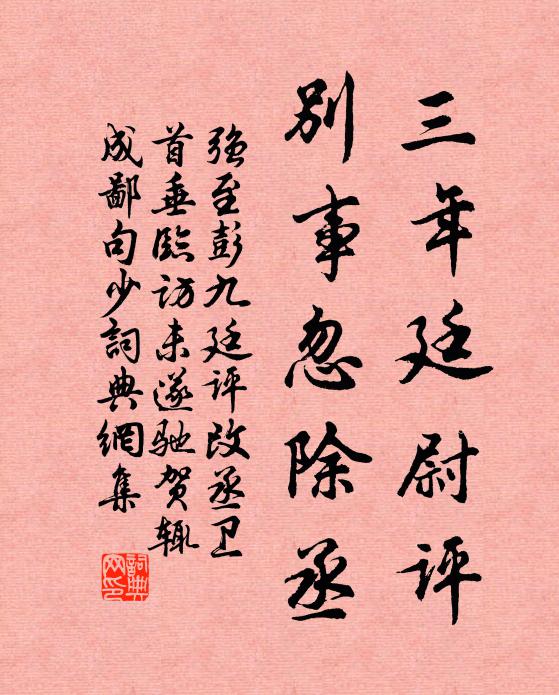 三年廷尉评
别事忽除丞
强至彭九廷评改丞卫
首垂臨访未遂驰贺辄
成鄙句少詞典網集
詞典
网印